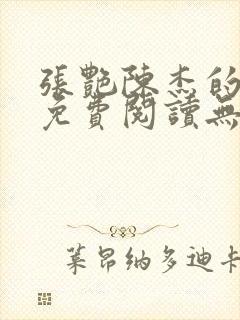 張艷陳杰的
免費閱讀無
萊昂納多迪卡